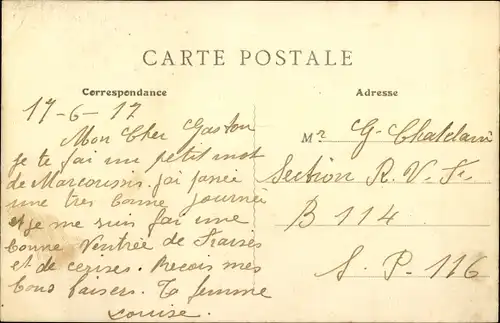 CARTE POSTALE
Correspondance
Adresse
17-6-17
Mon Cher Gaston
je te fai un petit mot
de Marcoussis. jai passée
une tres bonne journée
et je me suis fai une
bonne Ventrée de Fraises
et de cerises. Recois mes
bons baisers. Ta femme
Louise.
Mr G. Chatelain
Section R. V. F.
B 114
S. P. 116